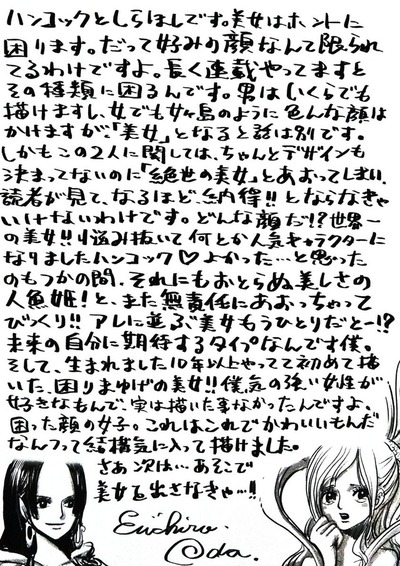 ハンコックとしらほしです。美女はホントに
困ります。だって好みの顔なんて限られ
てるわけですよ。長く連載やってますと
その種類に困るんです。男はいくらでも
描けますし、女でも女ヶ島のように色んな顔は
かけますが、「美女」となると話は別です。
しかもこの2人に関しては、ちゃんとデザインも
決まってないのに「絶世の美女」とあおってしまい、
読者が見て、なるほど、納得!!とならなきゃ
いけないわけです。どんな顔だ!?世界一
の美女!!悩み抜いて何とか人気キャラクターに
なりましたハンコック♡よかった…と思った
のもつかの間、それにもおとらぬ美しさの
人魚姫!と、また無責任にあおっちゃって
びっくり!!アレに並ぶ美女もうひとりだとー!?
未来の自分に期待するタイプなんです僕。
そして、生まれました10年以上やってて初めて描
いた、困りまゆげの美女!!僕、気の強い女性が
好きなもんで、実は描いた事なかったんですよ。
困った顔の女子。これはこれでかわいいもんだ
なんつって結構気に入って描けました。
さぁ次は…あそこで
美女を出さなきゃ…!!
Eiichiro
Oda.